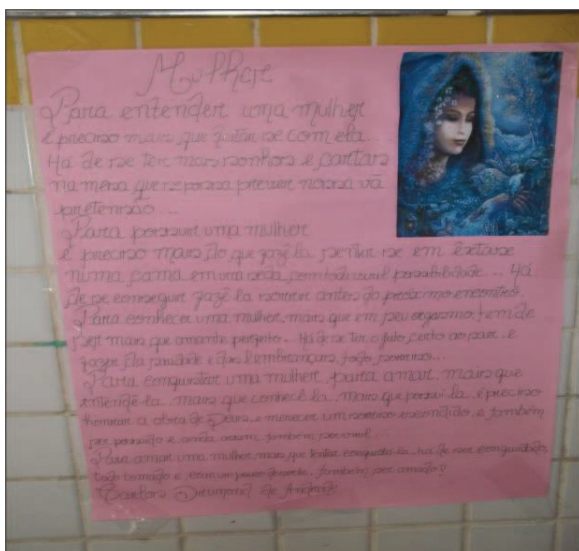 Mulher
Para entender uma mulher
é preciso mais que deitar-se com ela...
Há de se ter mais sonhos e cartas
na mesa que se possa prever nossa vã
pretensão...
Para possuir uma mulher
é preciso mais do que fazê-la sentir-se em êxtase
numa cama em uma seda com toda possibilidade... Há
de se conseguir fazê-la sorrir antes do próximo encontro
Para conhecer uma mulher, mais que em seu orgasmo, tem de
ser mais que amante perfeito... Há de se ter o jeito certo ao sair, e
fazer da saudade e das lembranças, todo sorriso...
Para conquistar uma mulher, para amar, mais que
entendê-la, mais que conhecê-la, mais que possuí-la, é preciso
honrar a obra de Deus, e merecer um sorriso escondido, e também
ser possuído e ainda assim, também ser
Para amar uma mulher, mais que tentar conquistá-la, há de ser conquistado
todo tomado e, com um pouco de sorte, também ser amado!
Drummond de Andrade